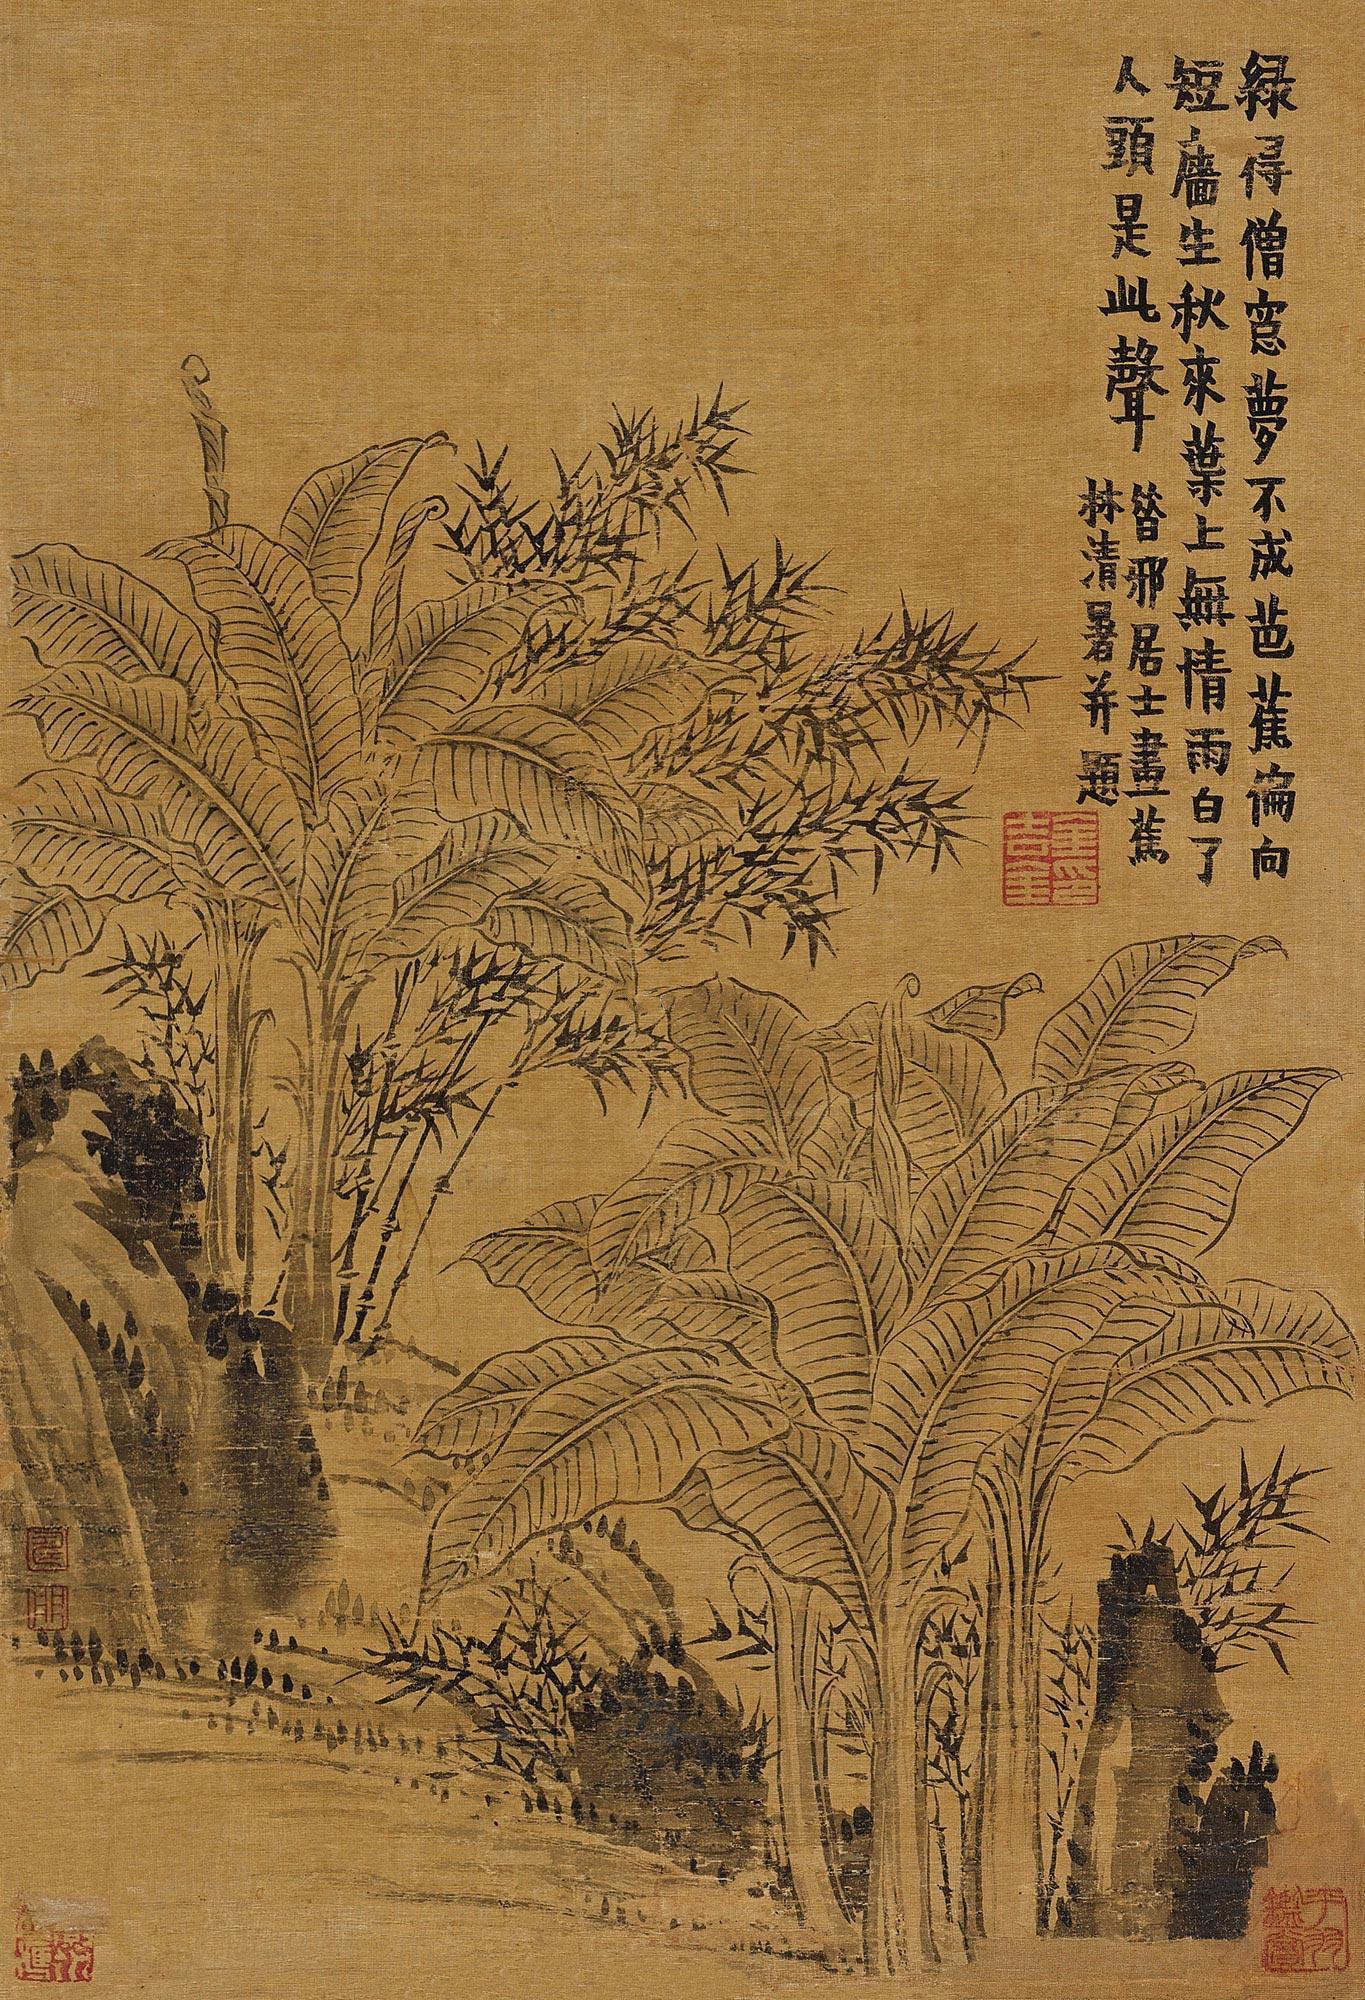 緑得僧窓夢不成芭蕉偏向
短牆生秋來葉上無情雨白了
人頭是此聲
昝邪居士畫蕉
林清暑并題
金吉金印